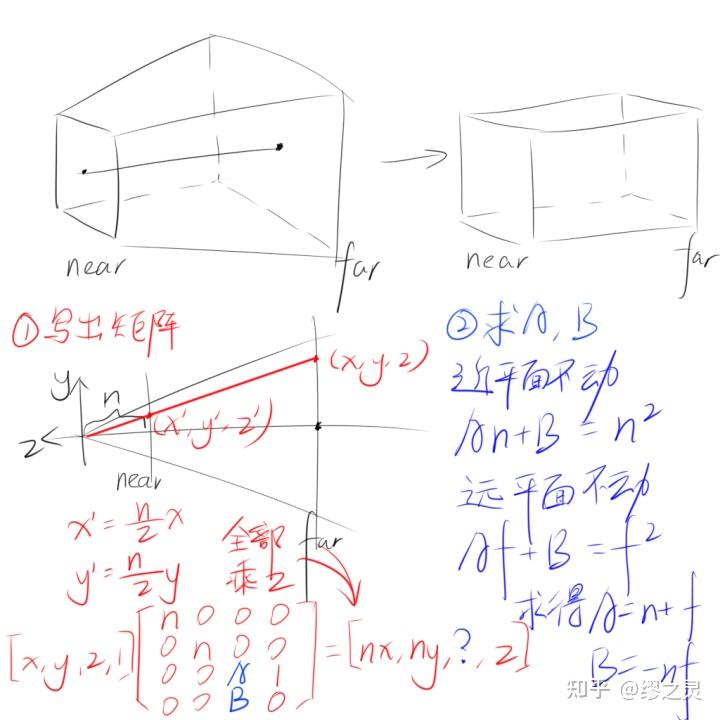 near
far
near
far
①写出矩阵
y
n
(x,y,z)
z
(x',y',z')
near
far
x'=n/z x
y'=n/z y
全部
乘z
[x,y,z,1] [n 0 0 0
0 n 0 0
0 0 A 1
0 0 B 0] =[nx,ny,?,z]
②求A,B
近平面不动
An+B=n²
远平面不动
Af+B=f²
求得A=n+f
B=-nf
知乎 @缪之灵